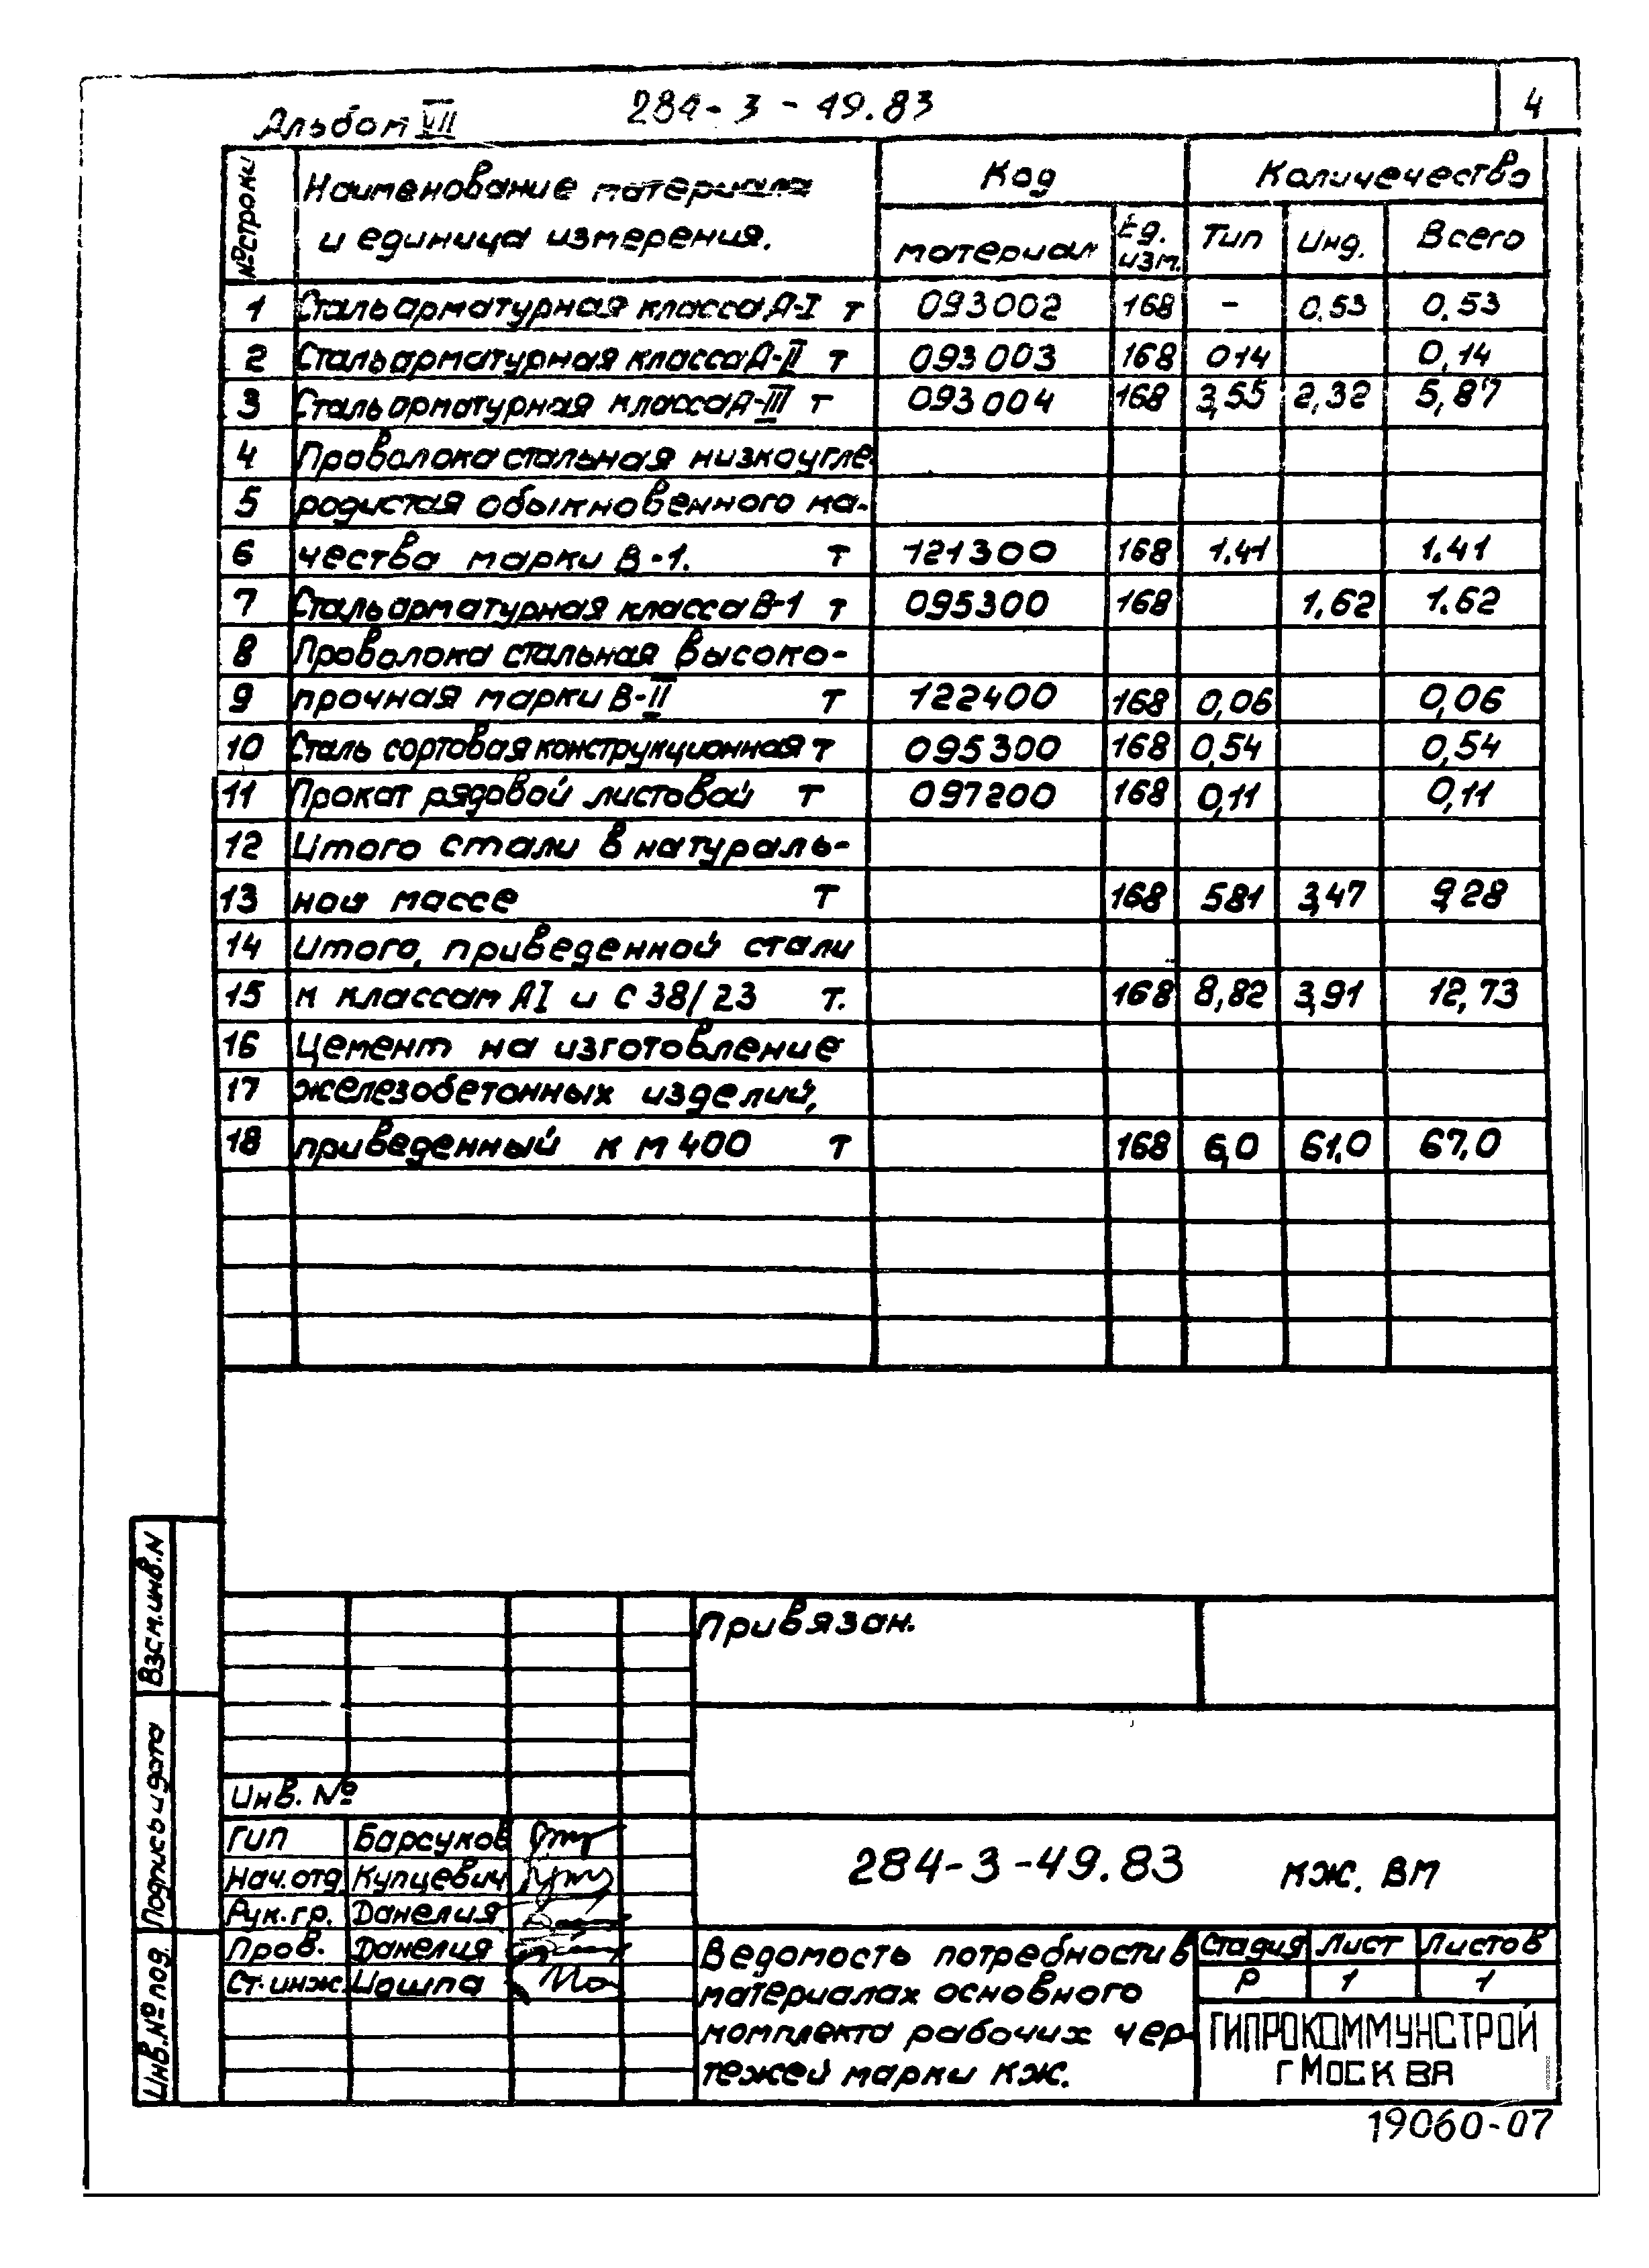 Альбом VII
284-3-49.83
4
№ строки
Наименование материала
и единица измерения.
Код
Количечество
материал
Ед.
изм.
Тип
Инд.
Всего
1 Сталь арматурная класса А-I т 093002 168 - 0.53 0.53
2 Сталь арматурная класса А-II т 093003 168 014 0,14
3 Сталь арматурная класса А-III т 093004 168 3,55 2,32 5,87
4 Проволока стальная низкоугле-
5 родистая обыкновенного ка-
6 чества марки В-1. т 121300 168 1.41 1.41
7 Сталь арматурная класса В-1 т 095300 168 1,62 1.62
8 Проволока стальная высоко-
9 прочная марки В-II т 122400 168 0,06 0,06
10 Сталь сортовая конструкционная т 095300 168 0,54 0,54
11 Прокат рядовой листовой т 097200 168 0,11 0,11
12 Итого стали в натураль-
13 ной массе т 168 581 3,47 9,28
14 Итого, приведенной стали
15 к классам АI и С 38/23 т. 168 8,82 3,91 12,73
16 Цемент на изготовление
17 железобетонных изделий,
18 приведенный к М 400 т 168 6,0 61,0 67,0
Взсм.инв.N
Подпись и дата
Инв.№ под
Привязан.
Инв. №
ГИП Барсуков
Нач.отд. Купцевич
Рук.гр. Данелия
Пров. Данелия
Ст.инж. Цошпа
284-3-49.83 КЖ. ВМ
Ведомость потребности в
материалах основного
комплекта рабочих чер-
тежей марки КЖ.
Стадия Лист Листов
Р 1 1
ГИПРОКОММУНСТРОЙ
г МОСКВА
19060-07